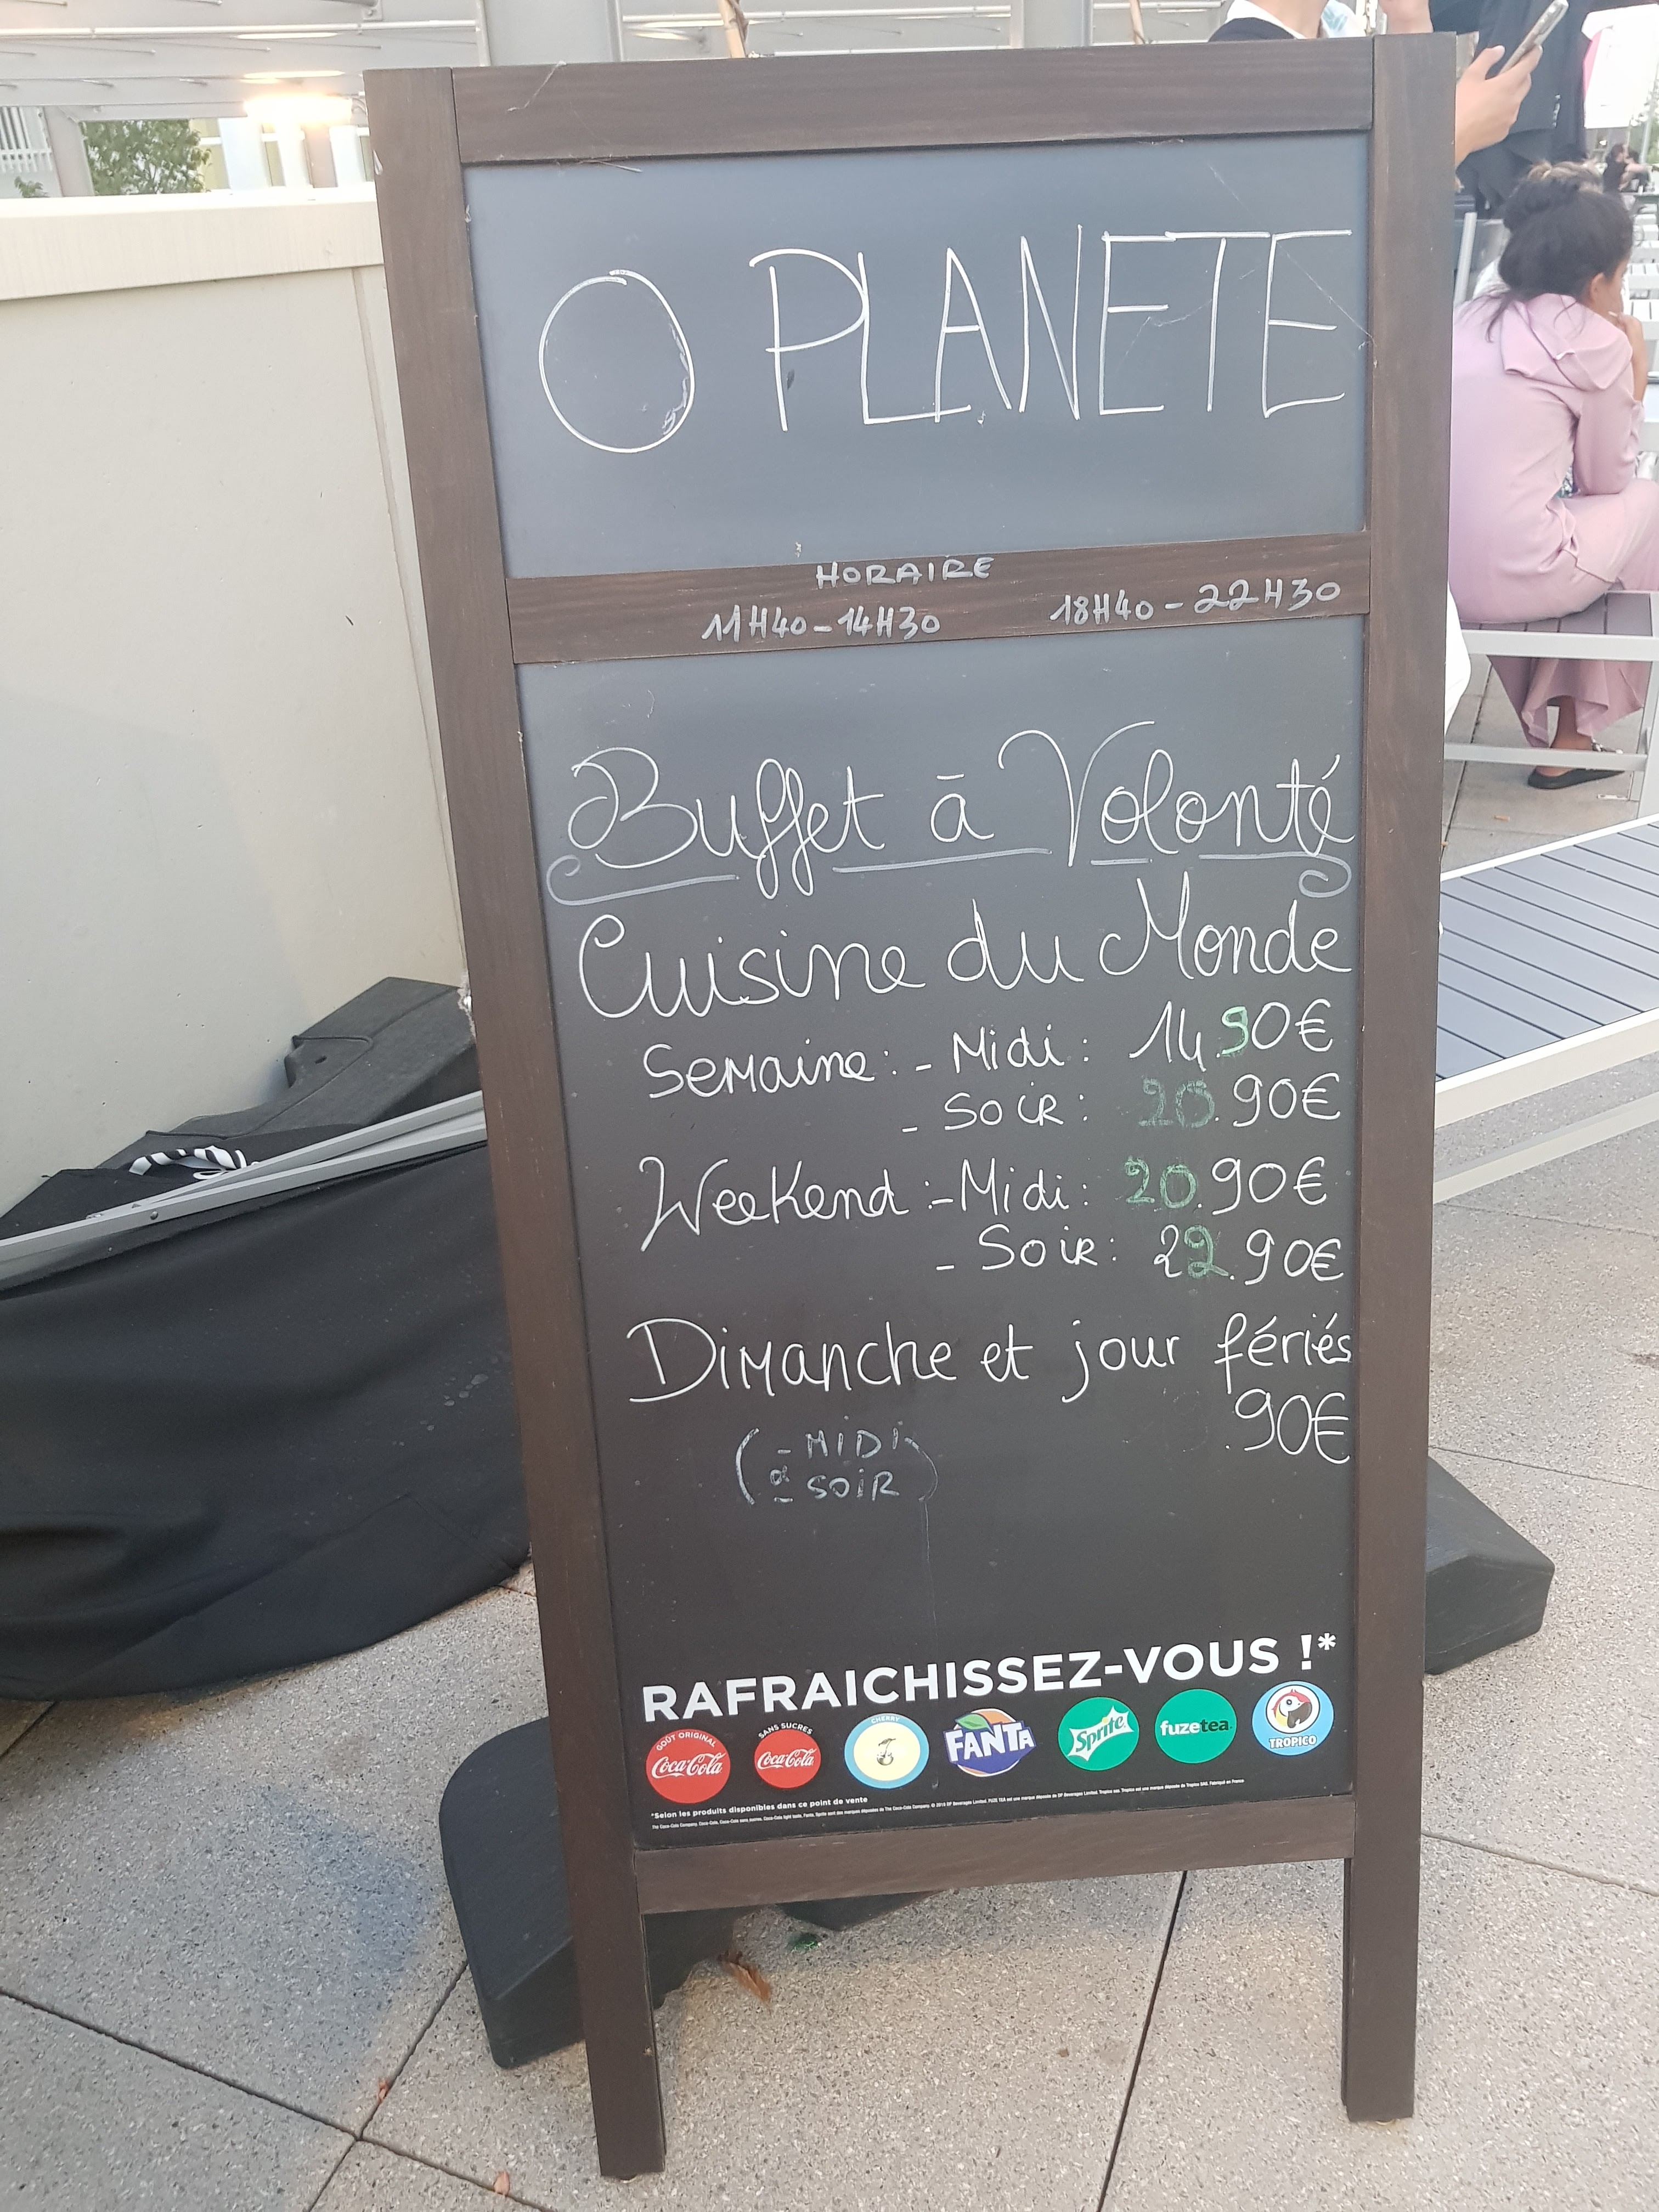 O PLANETE
HORAIRE
11H40-14H30 18H40-22H30
Buffet à Volonté
Cuisine du Monde
Semaine: - Midi: 14.90€
- Soir: 20.90€
Weekend: - Midi: 20.90€
- Soir: 22.90€
Dimanche et jour fériés
.90€
(- MIDI
& - SOIR)
RAFRAICHISSEZ-VOUS !*
GOÛT ORIGINAL Coca-Cola
SANS SUCRES Coca-Cola
CHERRY
FANTA
Sprite
fuzetea
TROPICO
*Selon les produits disponibles dans ce point de vente